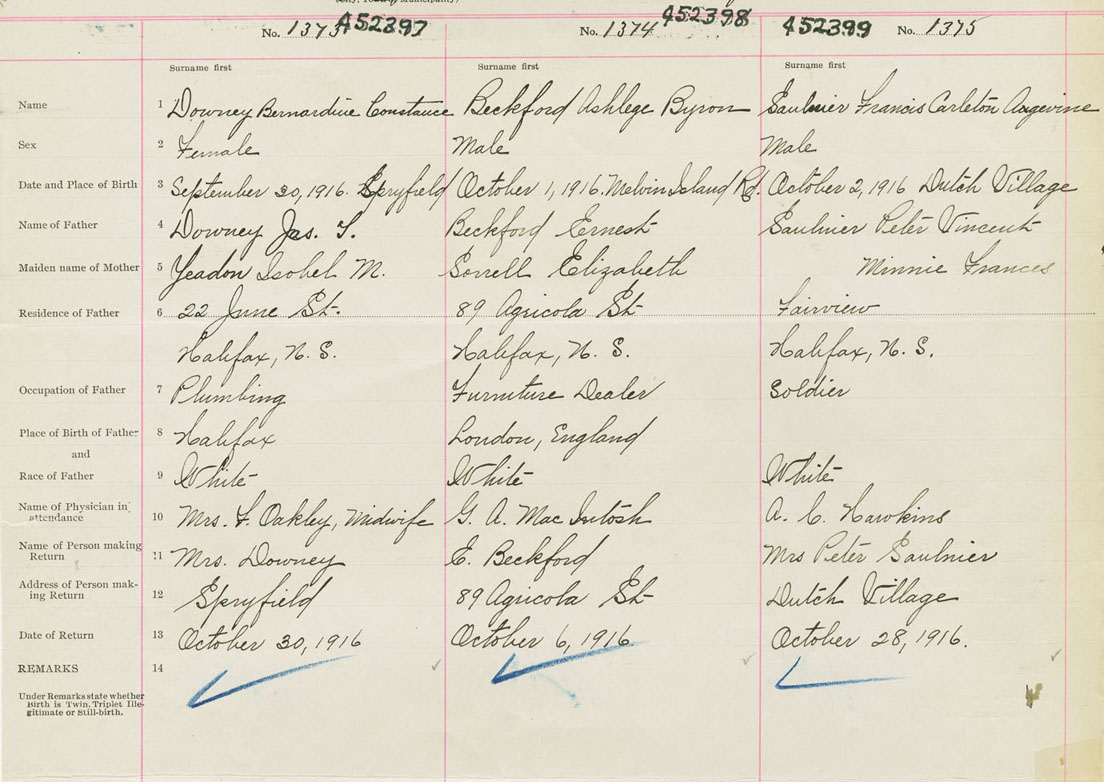 No. 1373 452397 No. 1374 452398 452399 No. 1375
Surname first Surname first Surname first
Name 1 Downey Bernardine Constance Beckford Ashlege Byron Saulnier Francis Carleton Angevine
Sex 2 Female Male Male
Date and Place of Birth 3 September 30, 1916. Spryfield October 1, 1916. Melvin Island Rd. October 2, 1916 Dutch Village
Name of Father 4 Downey Jas. T. Beckford Ernest Saulnier Peter Vincent
Maiden name of Mother 5 Yeadon Isobel M. Sorrell Elizabeth Minnie Frances
Residence of Father 6 22 June St. 89 Agricola St Fairview
Halifax, N. S. Halifax, N. S. Halifax, N. S.
Occupation of Father 7 Plumbing Furniture Dealer Soldier
Place of Birth of Father 8 Halifax London, England
and
Race of Father 9 White White White
Name of Physician in attendance 10 Mrs. F. Oakley, Midwife G. A. Mac Intosh A. C. Hawkins
Name of Person making Return 11 Mrs. Downey E. Beckford Mrs Peter Saulnier
Address of Person mak-ing Return 12 Spryfield 89 Agricola St Dutch Village
Date of Return 13 October 30, 1916 October 6, 1916 October 28, 1916.
REMARKS 14
Under Remarks state whether
Birth is Twin, Triplet Ille-
gitimate or Still-birth.